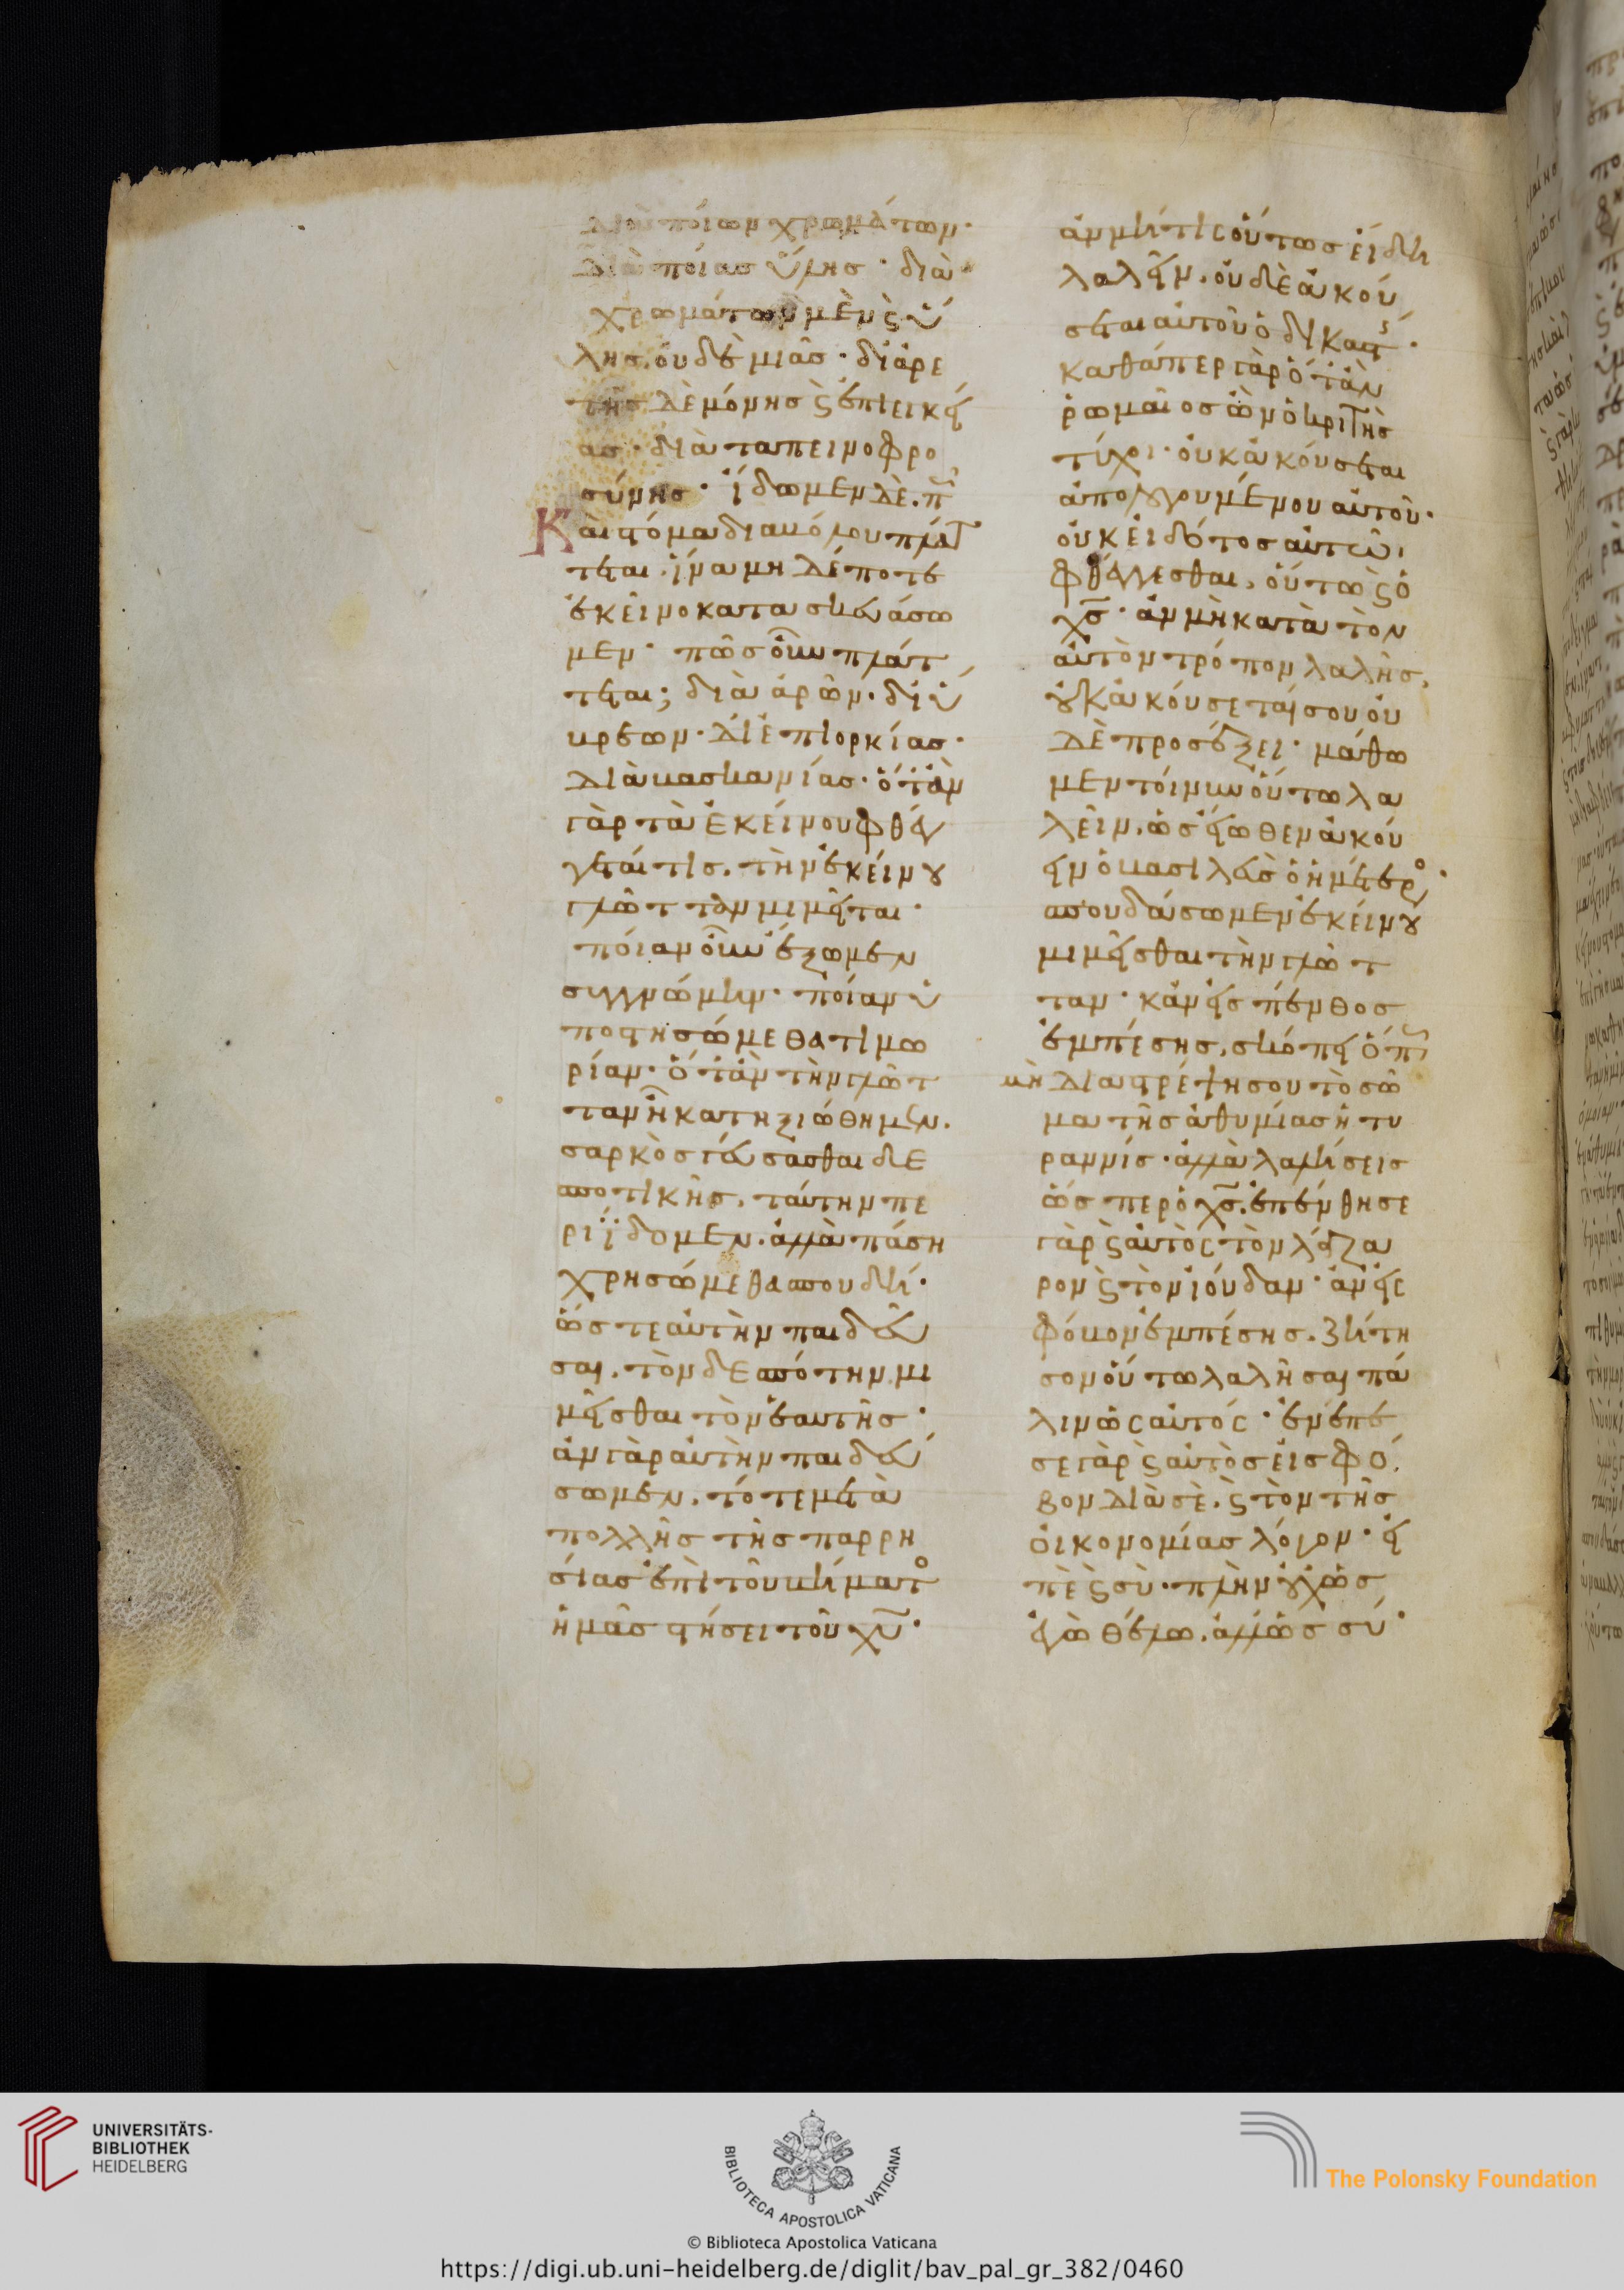 διὰ ποίων χρωμάτων·
διὰ ποίας ὕλης· διὰ
χρωμάτων μὲν ϛ ὕ
λης. οὐδὲ μιᾶς· δι' ἀρε
τῆς δὲ μόνης ϛ ἐπιεικεί
ας· διὰ ταπεινοφρο
σύνης· ἴδωμεν δὲ. π
Καὶ στόμα διαβόλου πλάτ
τεται. ἵνα μηδέποτε
ἐκεῖνο κατασκευάσω
μεν· πῶς οὖν πλάτ
τεται; διὰ ἀρῶν· δι' ὕ
βρεων· δι' ἐπιορκίας·
διὰ βασκανίας· ὅτὰν
γὰρ τὰ ἐκείνου φθέγ
γεταί τις. τὴν ἐκείνου
γλῶτταν μιμεῖται·
ποίαν οὖν ἕξωμεν
συγγνώμην· ποίαν ὑ
ποστησώμεθα τιμω
ρίαν· ὅτὰν τὴν γλῶτ
ταν ἧ κατηξιώθημεν.
σαρκὸς γεύσασθαι δε
σποτικῆς. ταύτην πε
ριΐδομεν. ἀλλὰ πάση
χρησώμεθα σπουδῆ·
ὥστε αὐτὴν παιδεῦ
σαι. τὸν δεσπότην μι
μεῖσθαι τὸν ἑαυτῆς·
ἂν γὰρ αὐτὴν παιδεύ
σωμεν. τότε μετὰ
πολλῆς τῆς παρρη
σίας ἐπὶ τοῦ βήματο
ἡμᾶς στήσει τοῦ χῦ·
ἂν μή τις οὕτως εἰδῆ
λαλεῖν. οὐδὲ ἀκού
σεται αὐτοῦ ὁ δικαστ·
καθάπερ γὰρ ὅτὰν
ῥωμαῖος ὢν ὁ κριτὴς
τύχοι· οὐκ ἀκούσεται
ἀπολογουμένου αὐτοῦ·
οὐκ εἰδότος αὐτῶ.
φθέγγεσθαι. οὕτω ϛ ὁ
χς· ἂν μὴ κατὰ τὸν
αὐτὸν τρόπον λαλῆς.
οὐκ ἀκούσεταί σου οὐ
δὲ προσέξει· μάθω
μεν τοίνυν οὕτω λα
λεῖν. ὡς εἴωθεν ἀκού
ειν ὁ βασιλεὺς ὁ ἡμέτερο·
σπουδάσωμεν ἐκείνου
μιμεῖσθαι τὴν γλῶτ
ταν· κἂν εἰς πένθος
ἐμπέσης. σκόπει ὅπ
μὴ διαστρέψη σου τὸ στό
μα τῆς ἀθυμίας ἡ τυ
ραννίς· ἀλλὰ λαλήσεις
ὥσπερ ὁ χς. ἐπένθησε
γὰρ ϛ αὐτὸς τὸν λάζα
ρον ϛ τὸν ἰούδαν· ἂν εἰς
φόβον ἐμπέσης. ζήτη
σον οὕτω λαλῆσαι πά
λιν ὡς αὐτός· ἐνέπε
σε γὰρ ϛ αὐτὸς εἰς φό
βον διὰ σὲ. ϛ τὸν τῆς
οἰκονομίας λόγον· εἰ
πὲ ϛ σὺ. πλὴν οὐχ ὡς
ἐγὼ θέλω. ἀλλ' ὡς σύ·
UNIVERSITÄTS-
BIBLIOTHEK
HEIDELBERG
BIBLIOTECA APOSTOLICA VATICANA
© Biblioteca Apostolica Vaticana
The Polonsky Foundation
https://digi.ub.uni-heidelberg.de/diglit/bav_pal_gr_382/0460